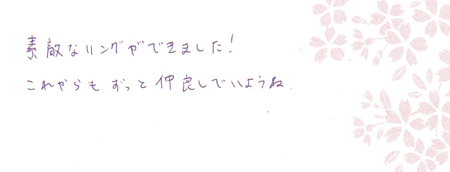 素敵なリングができました!
これからもずっと仲良しでいようね